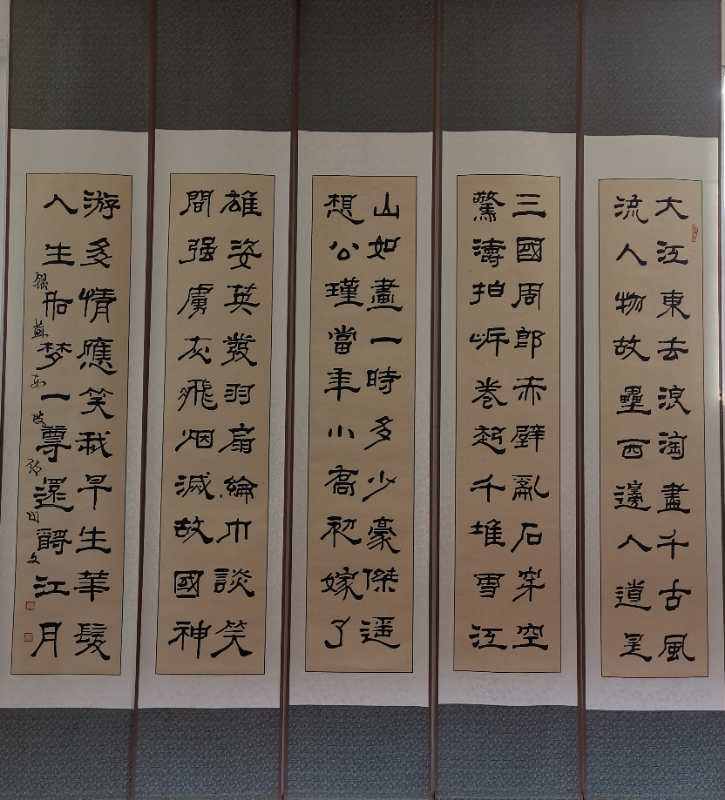 大江東去浪淘盡千古風
流人物故壘西邊人道是
三國周郎赤壁亂石穿空
驚濤拍岸卷起千堆雪江
山如畫一時多少豪傑遥
想公瑾當年小喬初嫁了
雄姿英發羽扇綸巾談笑
間强虜灰飛烟滅故國神
游多情應笑我早生華髮
人生如梦一尊還酹江月
錄蘇東坡詞